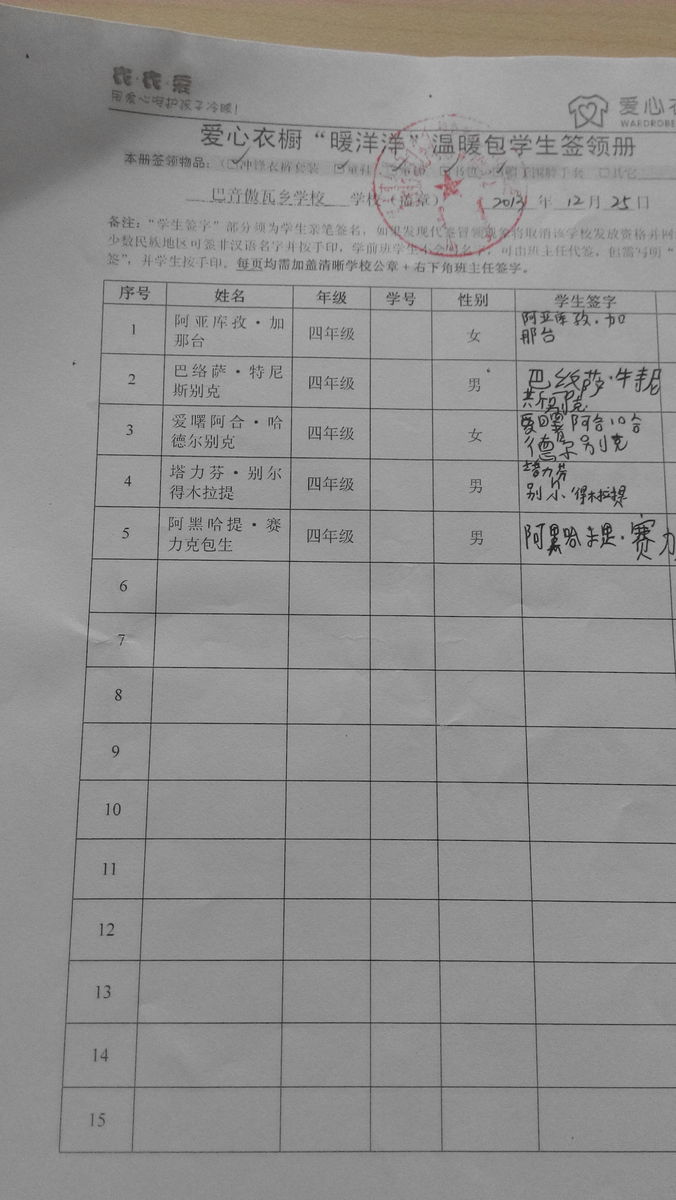 衣·衣·爱
用爱心呵护孩子冷暖!
爱心衣
WARDROBE
爱心衣橱“暖洋洋”温暖包学生签领册
本册签领物品：
冲锋衣裤套装
巴音傲瓦乡学校 学校（盖章） 2013 年 12 月 25 日
备注：“学生签字”部分须为学生亲笔签名，如果发现代签冒领现象将取消该学校发放资格并网
少数民族地区可签非汉语名字并按手印，学前班学生不会签名字，可由班主任代签，但需写明“
签”，并学生按手印。每页均需加盖清晰学校公章+右下角班主任签字。
序号 姓名 年级 学号 性别 学生签字
1 阿亚库孜·加那台 四年级 女 阿亚库孜·加那台
2 巴络萨·特尼斯别克 四年级 男 巴络莎·特尼斯别克
3 爱曙阿合·哈德尔别克 四年级 女 爱曙阿合哈德尔别克
4 塔力芬·别尔得木拉提 四年级 男 塔力芬别尔得木拉提
5 阿黑哈提·赛力克包生 四年级 男 阿黑哈提·赛力
6
7
8
9
10
11
12
13
14
15